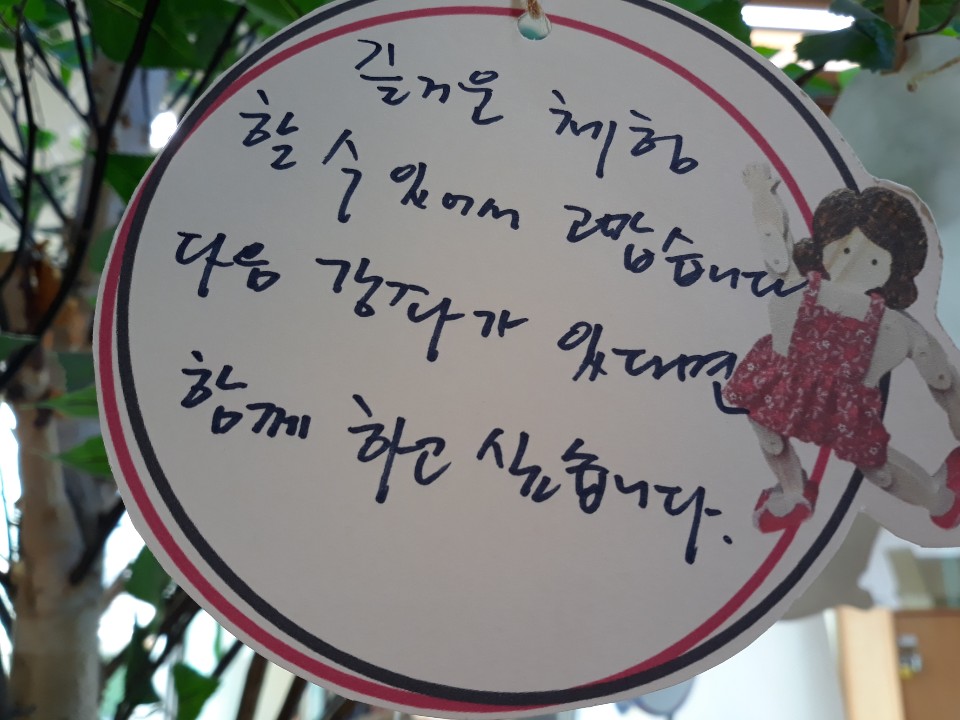 즐거운 체험
할 수 있어서 고맙습니다
다음 강좌가 있다면
함께 하고 싶습니다.